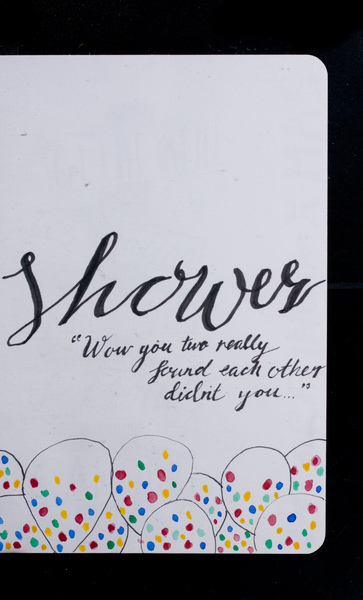 shower
"Wow you two really
found each other
didn't you..."